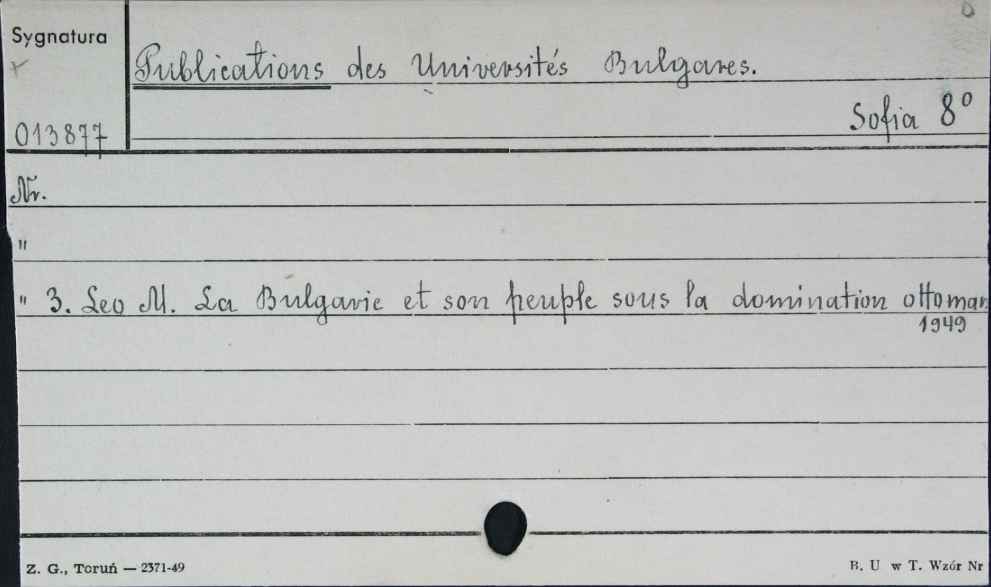 Sygnatura
013877
Publications des Universités Bulgares.
Sofia 8°
Nr.
"
" 3. Leo M. La Bulgarie et son peuple sous la domination ottoman
1949
Z. G., Toruń — 2371-49
B. U w T. Wzór Nr